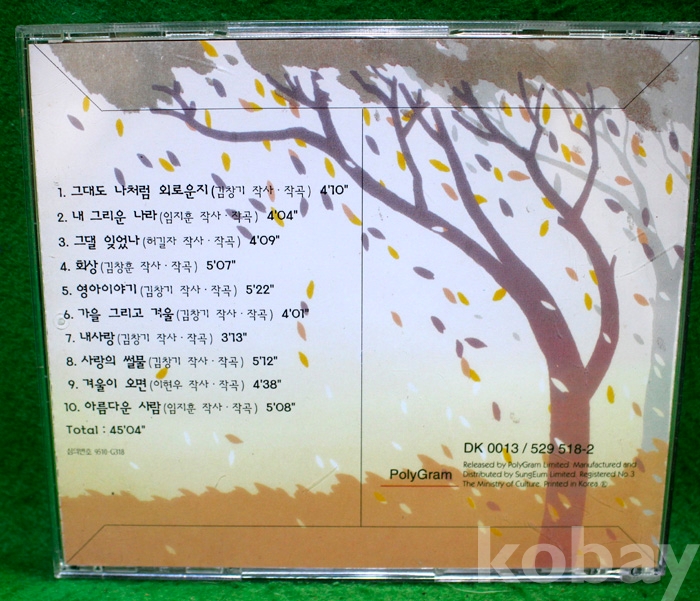 1. 그대도 나처럼 외로운지(김창기 작사·작곡) 4'10"
2. 내 그리운 나라(임지훈 작사·작곡) 4'04"
3. 그댈 잊었나(허길자 작사·작곡) 4'09"
4. 회상(김창훈 작사·작곡) 5'07"
5. 영아이야기(김창기 작사·작곡) 5'22"
6. 가을 그리고 겨울(김창기 작사·작곡) 4'01"
7. 내사랑(김창기 작사·작곡) 3'13"
8. 사랑의 썰물(김창기 작사·작곡) 5'12"
9. 겨울이 오면(이현우 작사·작곡) 4'38"
10. 아름다운 사람(임지훈 작사·작곡) 5'08"
Total : 45'04"
심의번호 9510-G318
DK 0013 / 529 518-2
PolyGram
Released by PolyGram Limited. Manufactured and
Distributed by SungEum Limited. Registered No.3
The Ministry of Culture. Printed in Korea. Ⓟ
kobay